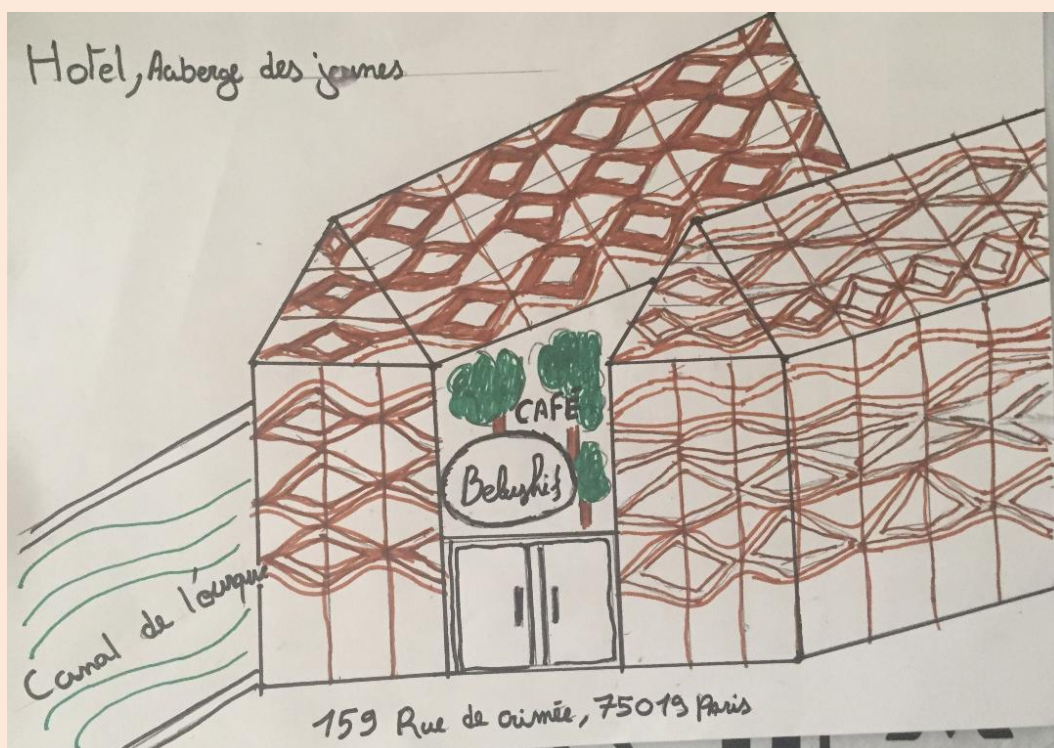 Hotel, Aaberge des jeunes
CAFÉ
Belushi's
Canal de l'ourque
159 Rue de crimée, 75019 Paris